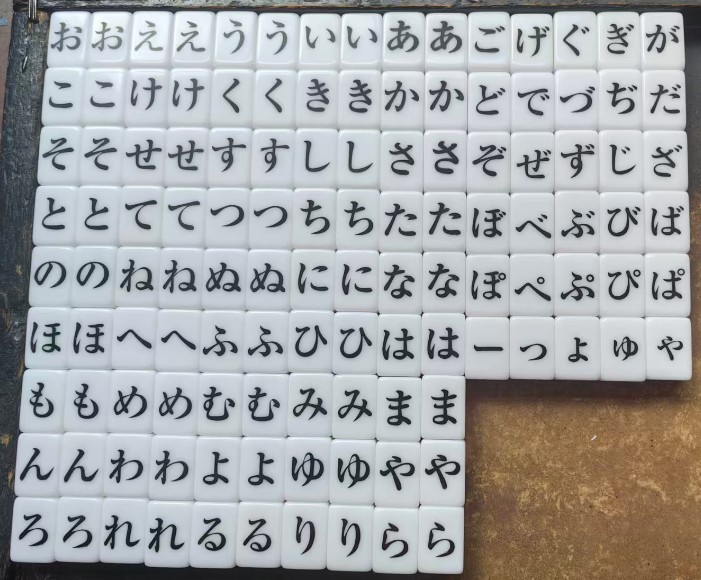 おおええうういいああごげぐぎが
ここけけくくききかかどでづぢだ
そそせせすすししささぞぜずじざ
ととててつつちちたたぼべぶびば
ののねねぬぬににななぽぺぷぴぱ
ほほへへふふひひははーっょゅゃ
ももめめむむみみまま
んんわわよよゆゆやや
ろろれれるるりりらら